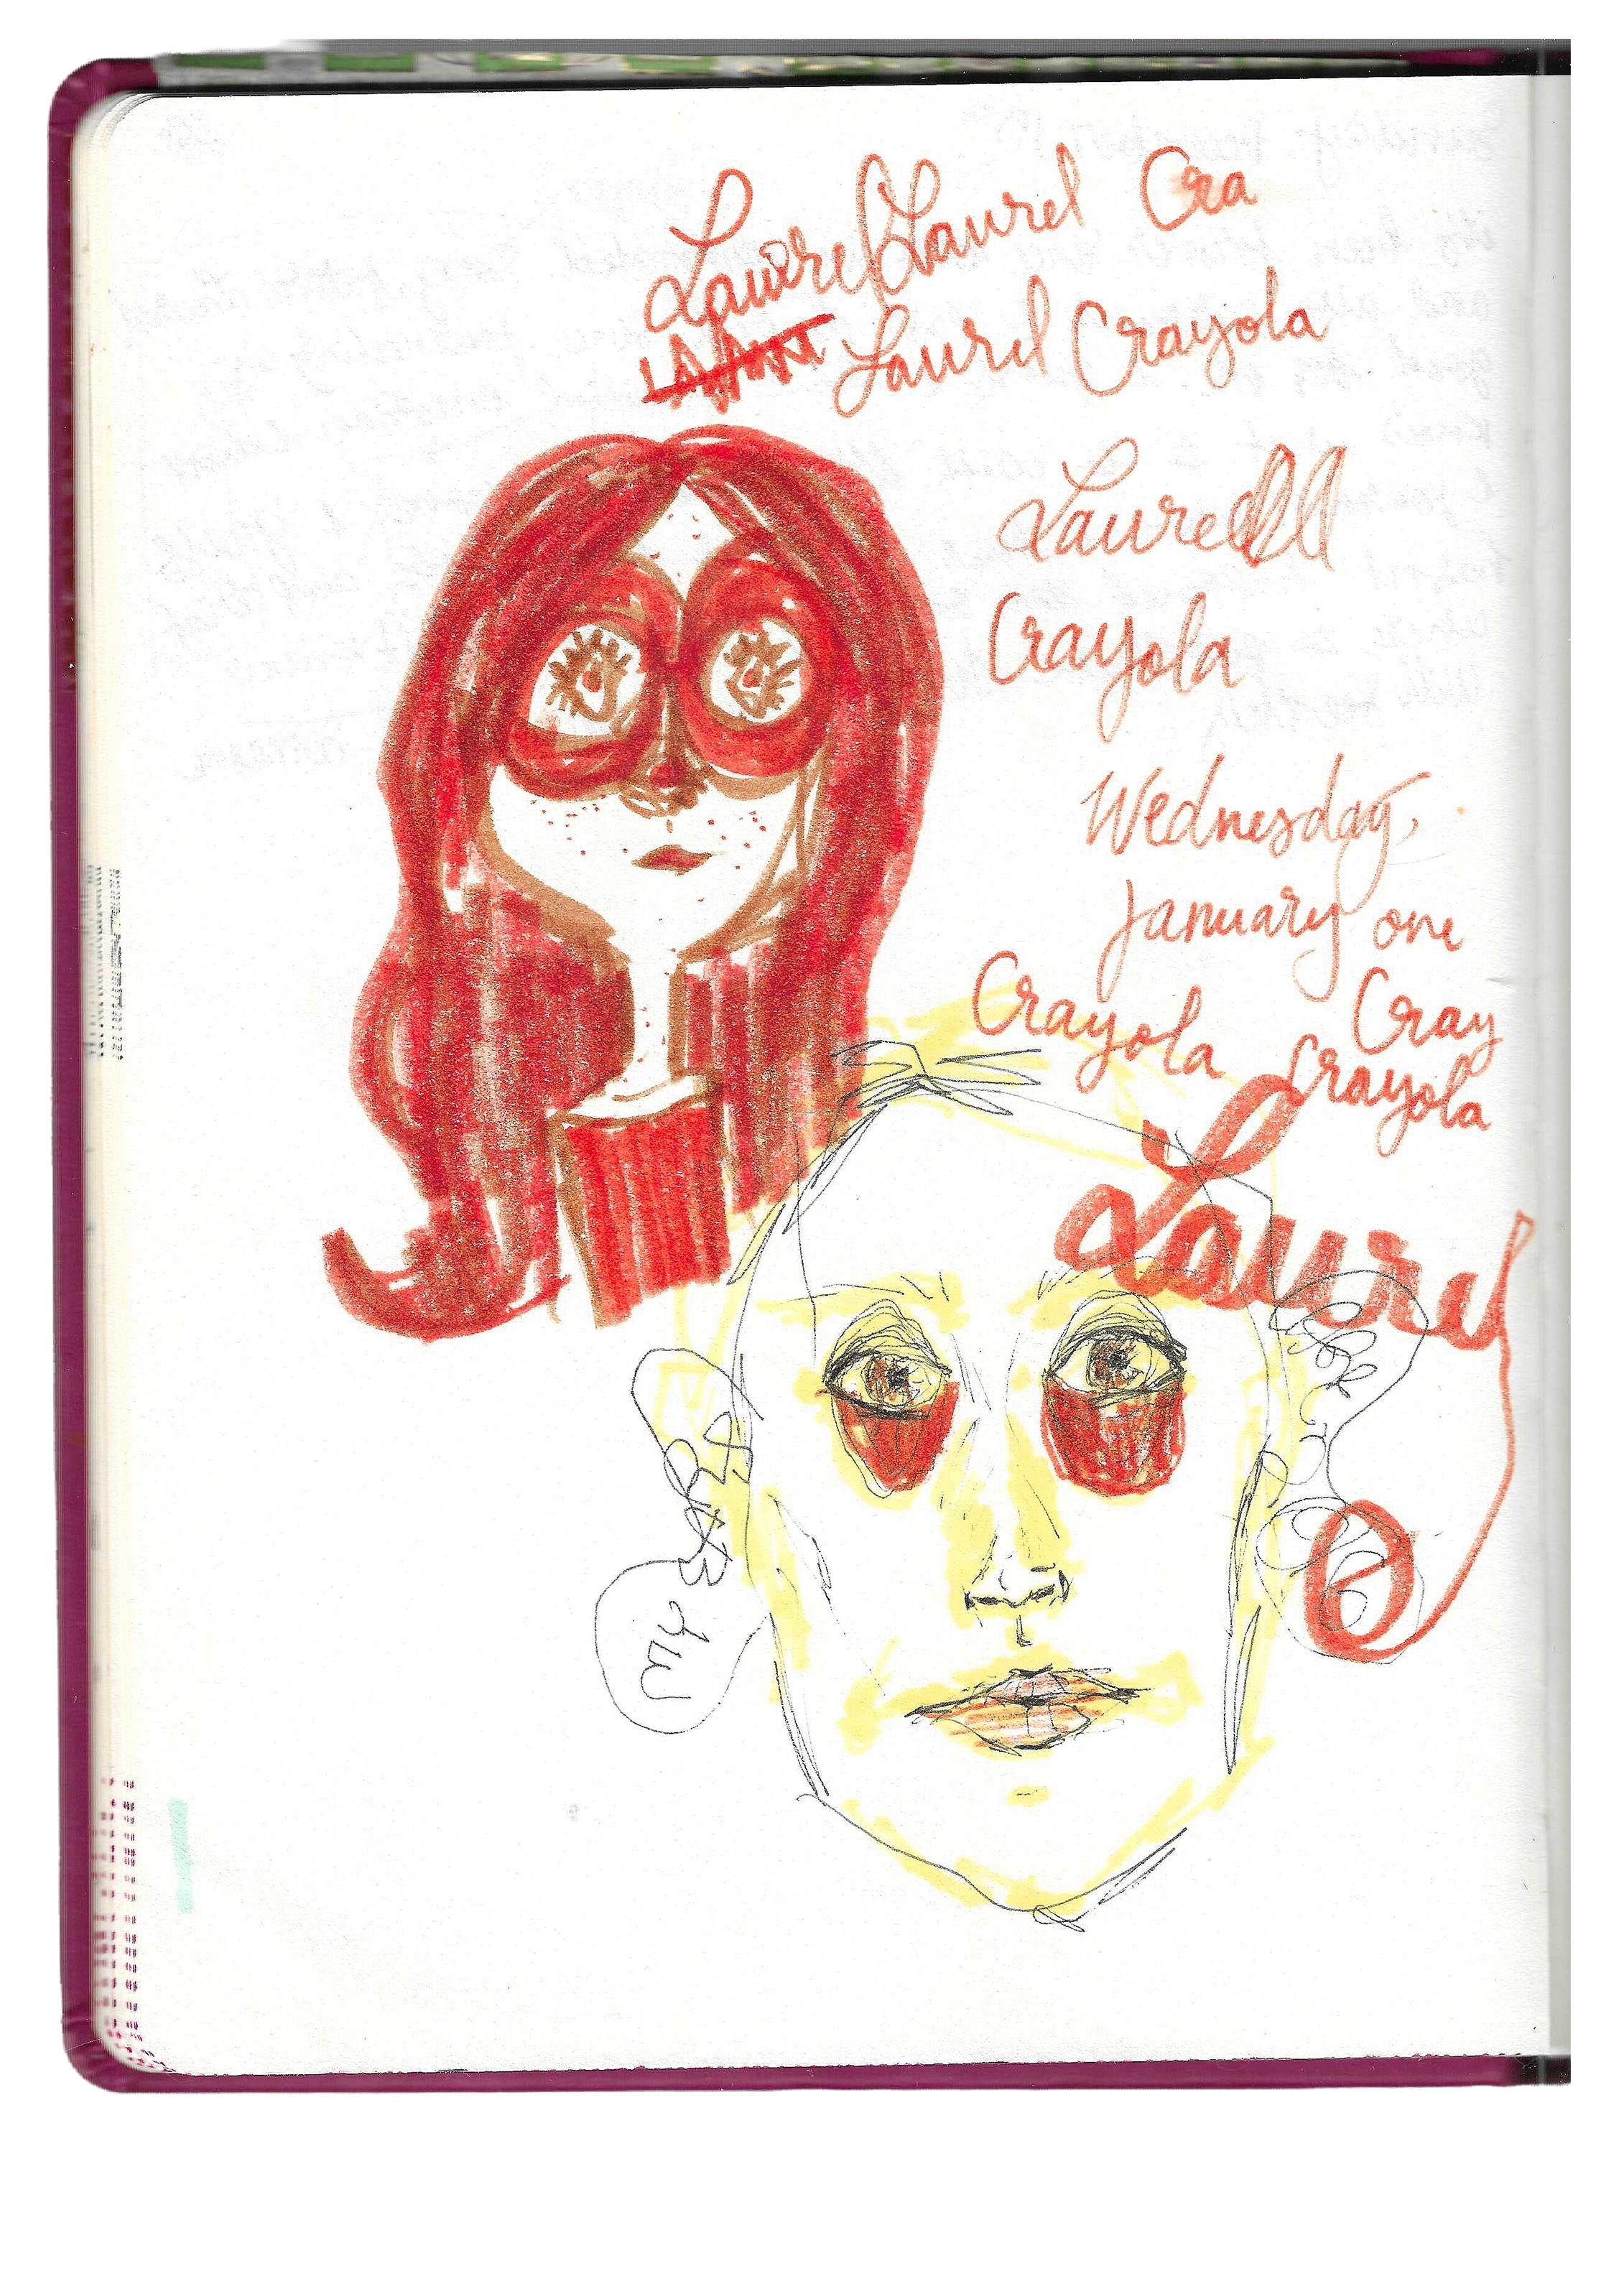 Laurel Laurel Cra
Laurel Crayola
Laurell
Crayola
Wednesday,
January one
Crayola Cray
Crayola
Laurel